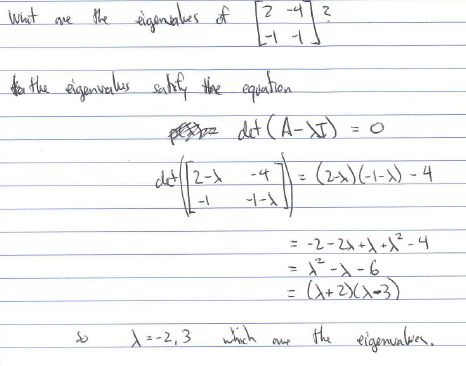 What are the eigenvalues of [2 -4
-1 -1]?
the eigenvalues satisfy the equation
det(A-λI) = 0
det([2-λ -4
-1 -1-λ]) = (2-λ)(-1-λ) - 4
= -2-2λ+λ+λ²-4
= λ²-λ-6
= (λ+2)(λ-3)
so λ=-2,3 which are the eigenvalues.